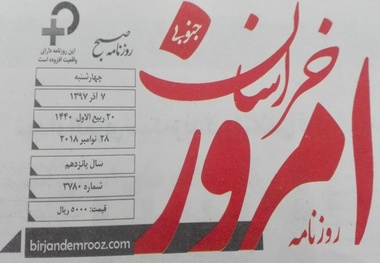 روزنامه صبح
این روزنامه دارای
واقعیت افزوده است
چهارشنبه
۷ آذر ۱۳۹۷
۲۰ ربیع الاول ۱۴۴۰
۲۸ نوامبر ۲۰۱۸
سال پانزدهم
شماره ۳۷۸۰
قیمت: ۵۰۰۰ ریال
birjandemrooz.com
روزنامه
امروز
خراسان
جنوبی